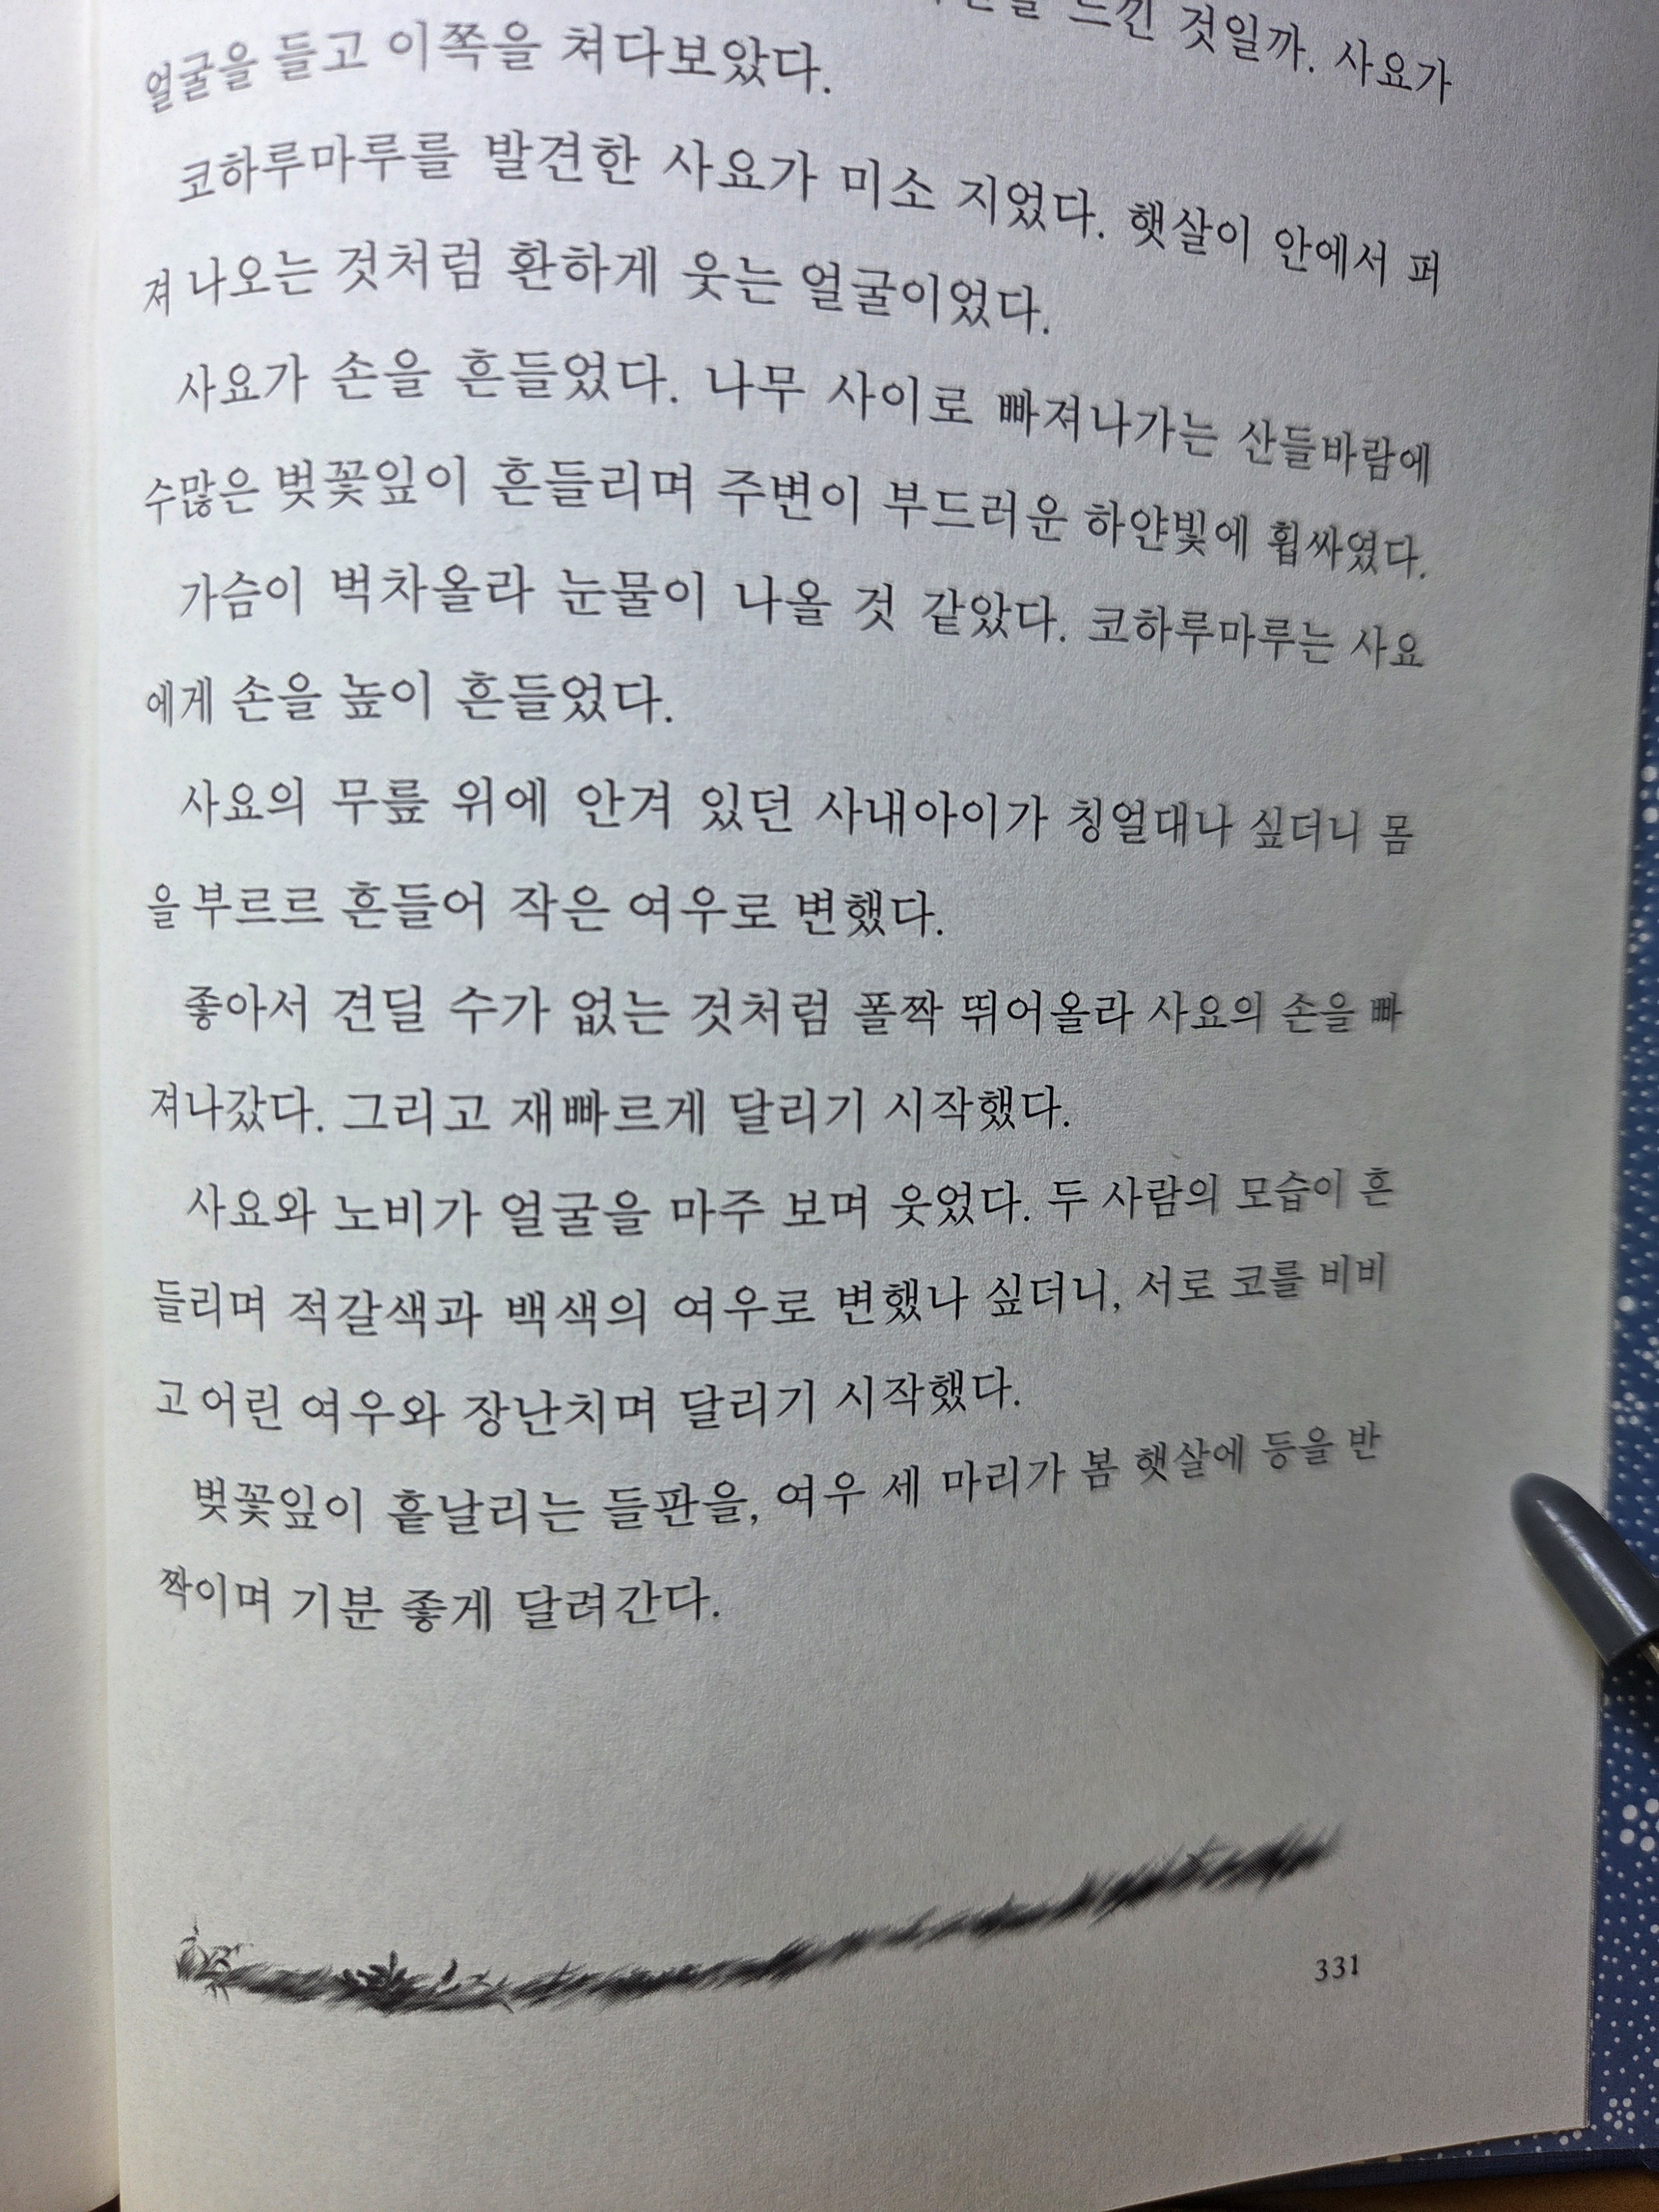 느낀 것일까. 사요가
얼굴을 들고 이쪽을 쳐다보았다.
코하루마루를 발견한 사요가 미소 지었다. 햇살이 안에서 퍼
져 나오는 것처럼 환하게 웃는 얼굴이었다.
사요가 손을 흔들었다. 나무 사이로 빠져나가는 산들바람에
수많은 벚꽃잎이 흔들리며 주변이 부드러운 하얀빛에 휩싸였다.
가슴이 벅차올라 눈물이 나올 것 같았다. 코하루마루는 사요
에게 손을 높이 흔들었다.
사요의 무릎 위에 안겨 있던 사내아이가 칭얼대나 싶더니 몸
을 부르르 흔들어 작은 여우로 변했다.
좋아서 견딜 수가 없는 것처럼 폴짝 뛰어올라 사요의 손을 빠
져나갔다. 그리고 재빠르게 달리기 시작했다.
사요와 노비가 얼굴을 마주 보며 웃었다. 두 사람의 모습이 흔
들리며 적갈색과 백색의 여우로 변했나 싶더니, 서로 코를 비비
고 어린 여우와 장난치며 달리기 시작했다.
벚꽃잎이 흩날리는 들판을, 여우 세 마리가 봄 햇살에 등을 반
짝이며 기분 좋게 달려간다.
331